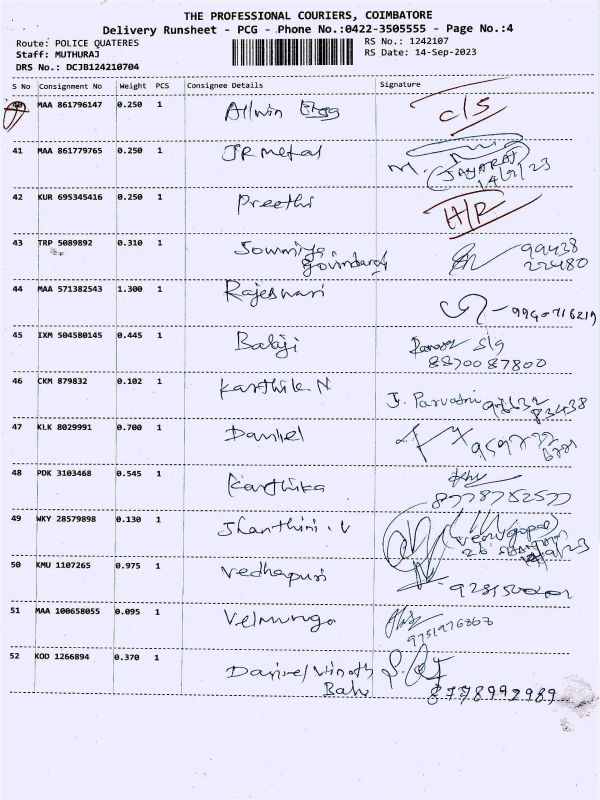 THE PROFESSIONAL COURIERS, COIMBATORE
Delivery Runsheet - PCG - Phone No.:0422-3505555 - Page No.:4
Route: POLICE QUATERES
RS No.: 1242107
Staff: MUTHURAJ
RS Date: 14-Sep-2023
DRS No.: DCJB124210704
S No Consignment No Weight PCS Consignee Details Signature
40 MAA 861796147 0.250 1 Allwin Engg C/S
41 MAA 861779765 0.250 1 JR Metal M. JAYARAJ
14/9/23
42 KUR 695345416 0.250 1 Preethi H/R
43 TRP 5089892 0.310 1 Sowmiya 99438
Govindaraj 22480
44 MAA 571382543 1.300 1 Rajeswari - 9940716219
45 IXM 504580145 0.445 1 Balaji
8870087800
46 CKM 879832 0.102 1 Karthik N J. Parvathi
83438
47 KLK 8029991 0.700 1 Daniel
48 PDK 3103468 0.545 1 Karthika
8778752577
49 WKY 28579898 0.130 1 Shanthini . V (Venugopal)
50 KMU 1107265 0.975 1 Vedhapuri
51 MAA 100658055 0.095 1 Velmurugo
9751976867
52 KOD 1266894 0.370 1 Daniel Vinoth
Babu 8778992989